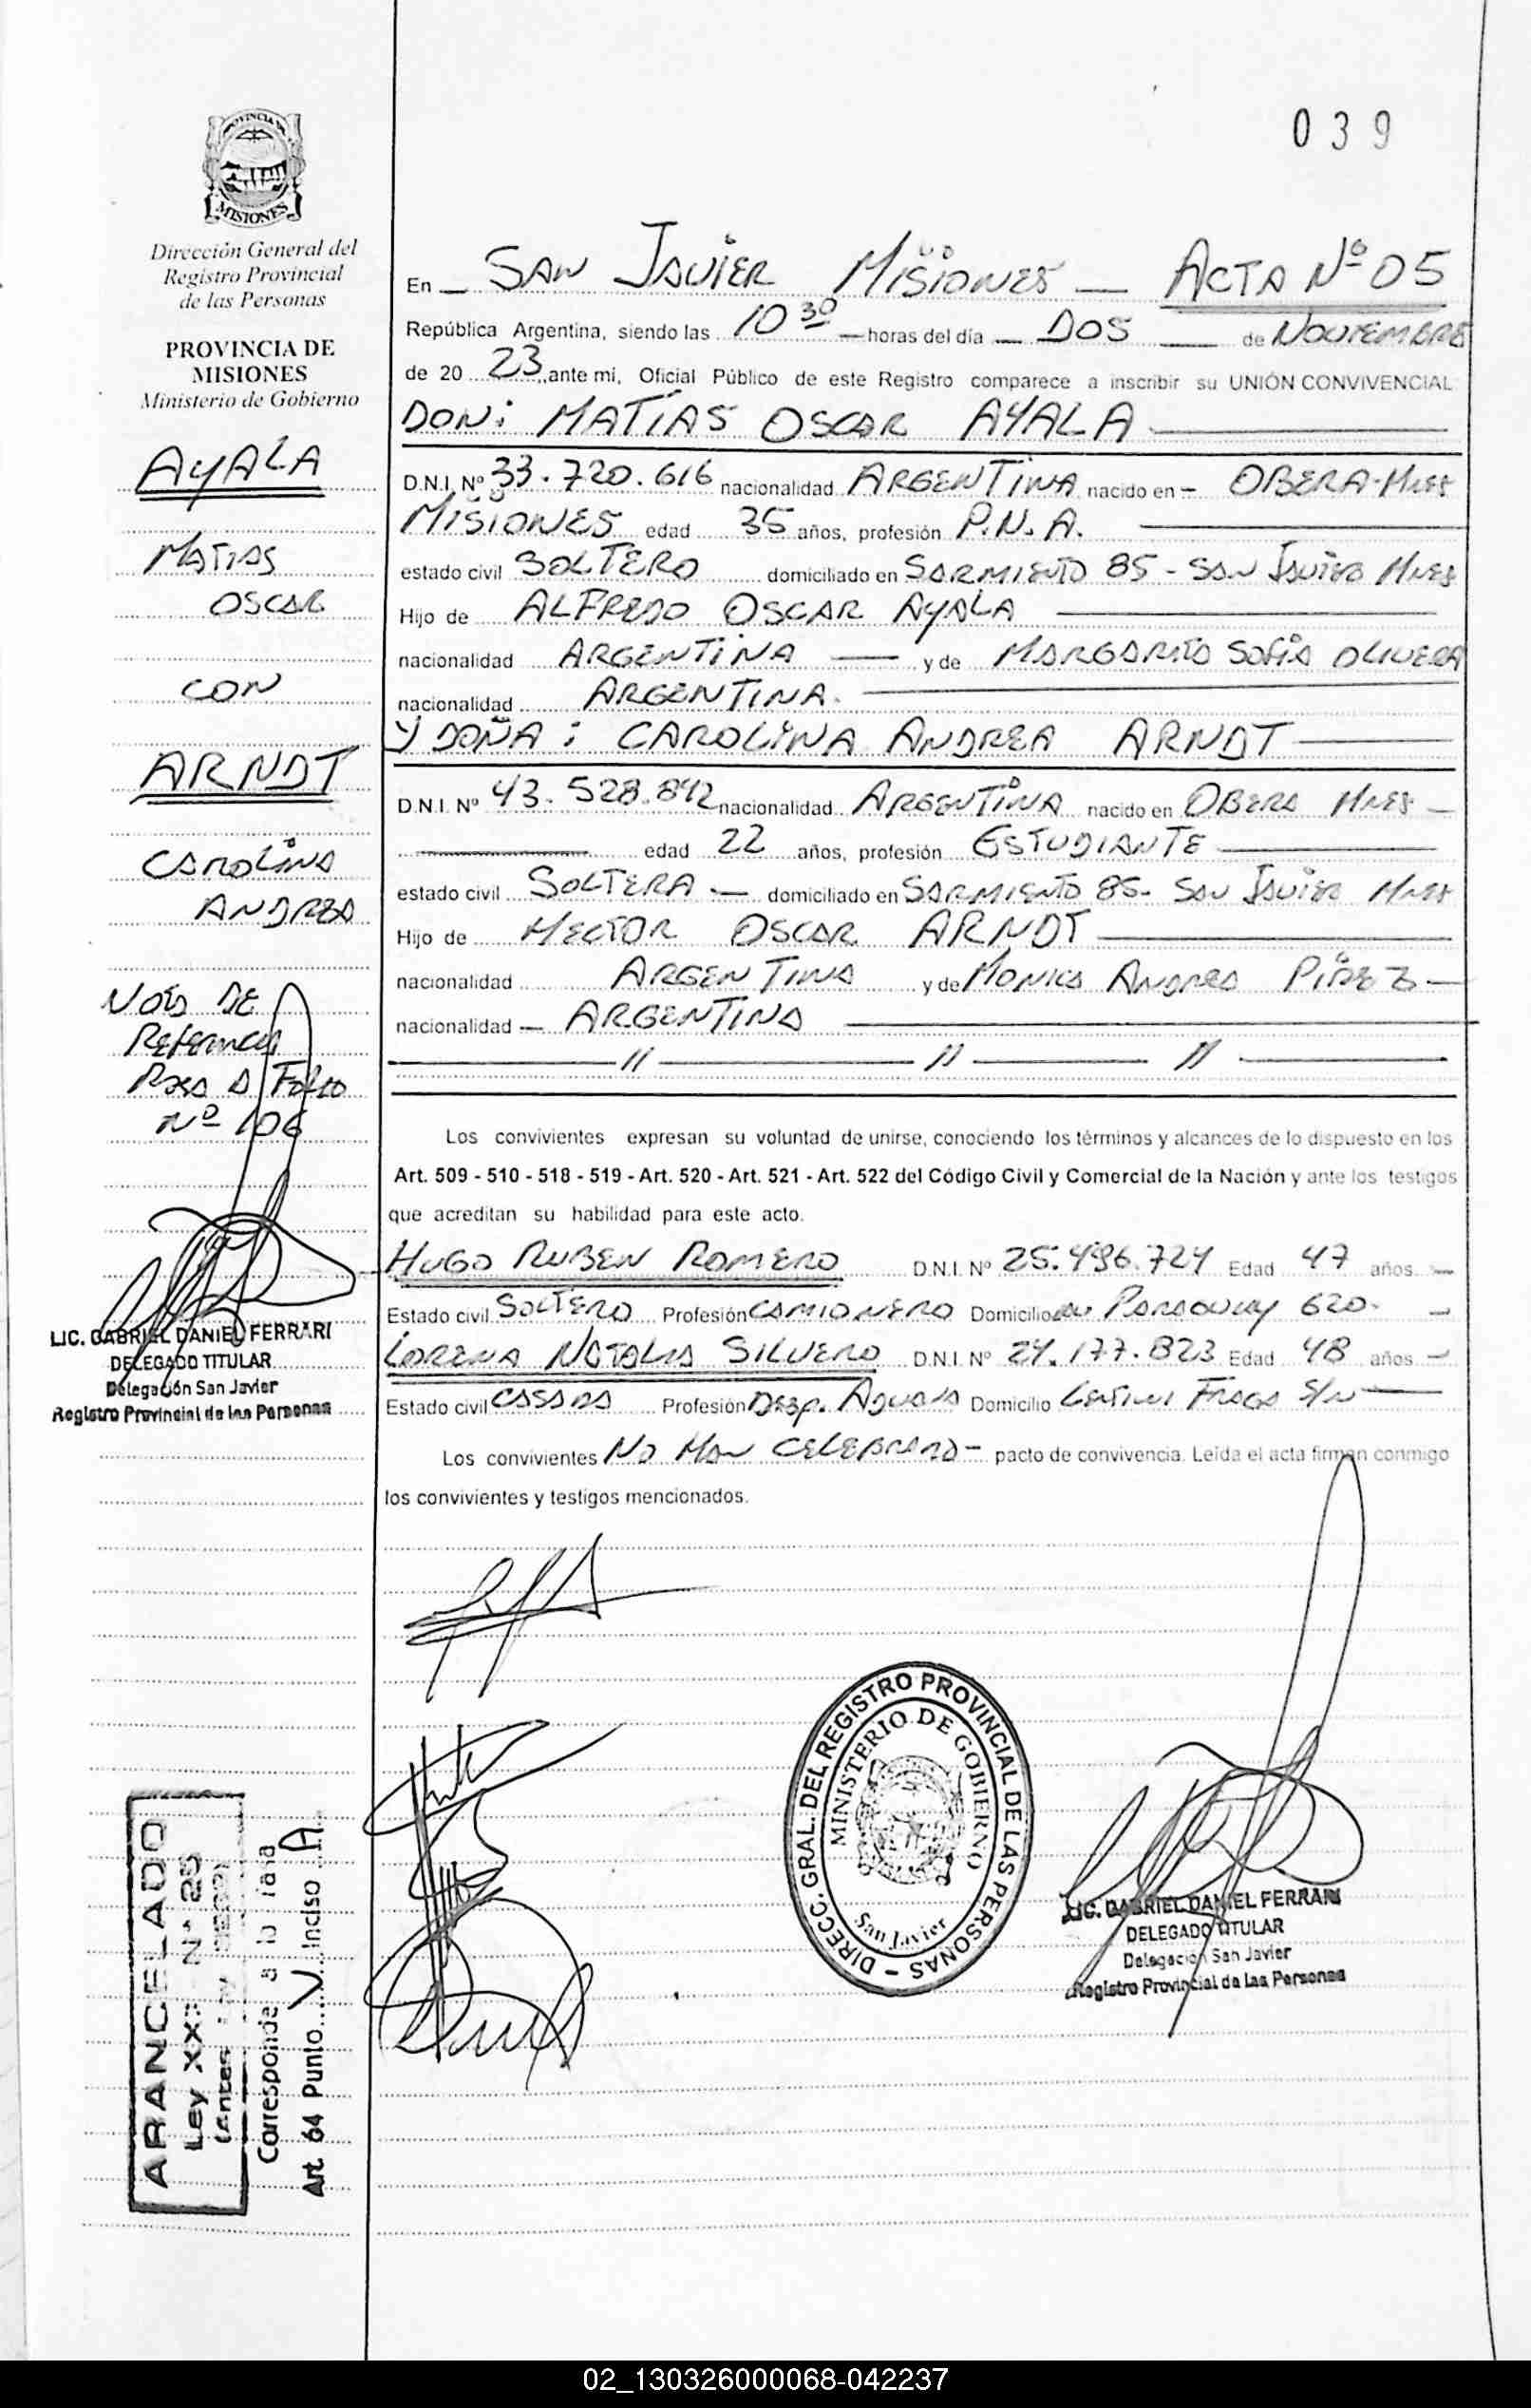 039
PROVINCIA DE
MISIONES
Dirección General del
Registro Provincial
de las Personas
PROVINCIA DE
MISIONES
Ministerio de Gobierno
AYALA
MATIAS
OSCAR
CON
ARNDT
CAROLINA
ANDREA
NOTA DE
Referencia
Pasa A Folio
Nº 106
LIC. GABRIEL DANIEL FERRARI
DELEGADO TITULAR
Delegación San Javier
Registro Provincial de las Personas
ARANCELADO
Ley XX
(Antes
Corresponde a lo
Art. 64 Punto V Inciso A
En SAN JAVIER MISIONES ACTA Nº 05
República Argentina, siendo las 10 30 horas del día DOS de NOVIEMBRE
de 20 23, ante mi, Oficial Público de este Registro comparece a inscribir su UNIÓN CONVIVENCIAL
DON: MATIAS OSCAR AYALA
D.N.I. Nº 33.720.616 nacionalidad ARGENTINA nacido en - OBERA-Mnes
MISIONES edad 35 años, profesión P.N.A.
estado civil SOLTERO domiciliado en SARMIENTO 85 - SAN JAVIER Mnes
Hijo de ALFREDO OSCAR AYALA
nacionalidad ARGENTINA y de MARGARITA SOFIA OLIVERA
nacionalidad ARGENTINA.
Y DOÑA: CAROLINA ANDREA ARNDT
D.N.I. Nº 43.528.842 nacionalidad ARGENTINA nacido en OBERA Mnes -
edad 22 años, profesión ESTUDIANTE
estado civil SOLTERA - domiciliado en SARMIENTO 85- SAN JAVIER Mnes
Hijo de HECTOR OSCAR ARNDT
nacionalidad ARGENTINA y de MONICA ANDREA PIREZ -
nacionalidad - ARGENTINA
// // //
Los convivientes expresan su voluntad de unirse, conociendo los términos y alcances de lo dispuesto en los
Art. 509 - 510 - 518 - 519 - Art. 520 - Art. 521 - Art. 522 del Código Civil y Comercial de la Nación y ante los testigos
que acreditan su habilidad para este acto.
HUGO RUBEN ROMERO D.N.I. Nº 25.496.724 Edad 47 años. -
Estado civil SOLTERO Profesión CAMIONERO Domicilio Av PARAGUAY 620. -
LORENA NATALIA SILVERO D.N.I. Nº 24.177.823 Edad 48 años -
Estado civil CASADA Profesión DESP. ADUANA Domicilio FRAGA S/N
Los convivientes NO HAN CELEBRADO - pacto de convivencia. Leída el acta firman conmigo
los convivientes y testigos mencionados.
DIRECC. GRAL. DEL REGISTRO PROVINCIAL DE LAS PERSONAS -
MINISTERIO DE GOBIERNO
San Javier
LIC. GABRIEL DANIEL FERRARI
DELEGADO TITULAR
Delegación San Javier
Registro Provincial de las Personas
02_130326000068-042237